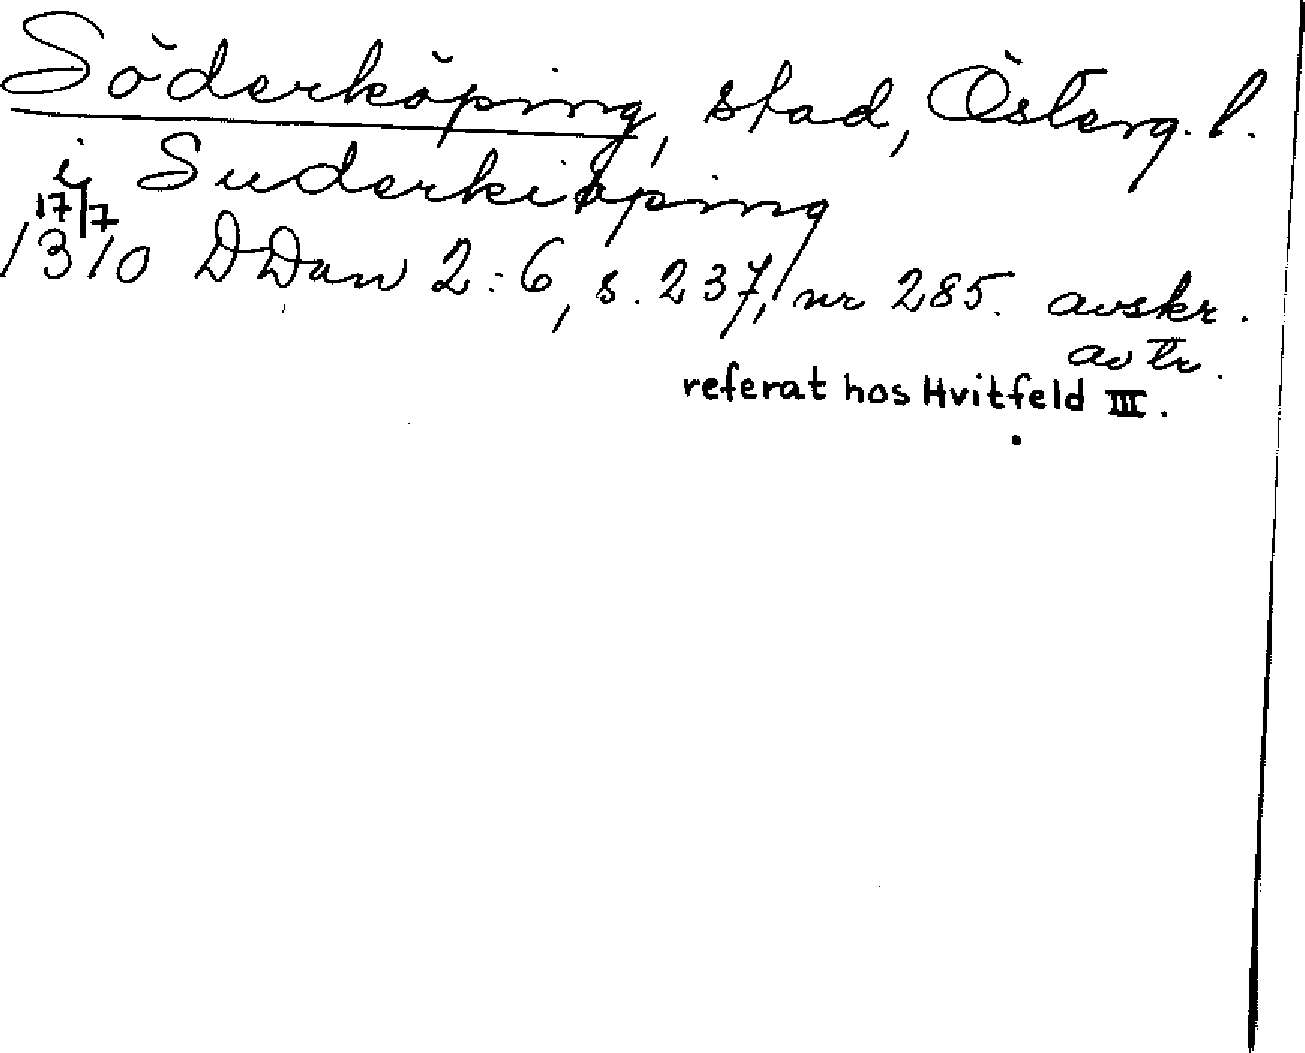 Söderköping, stad, Österg. l.
i Suderkiøping
17/7
1310 DDan 2:6, s. 237, nr 285. avskr.
av tr.
referat hos Hvitfeld III.